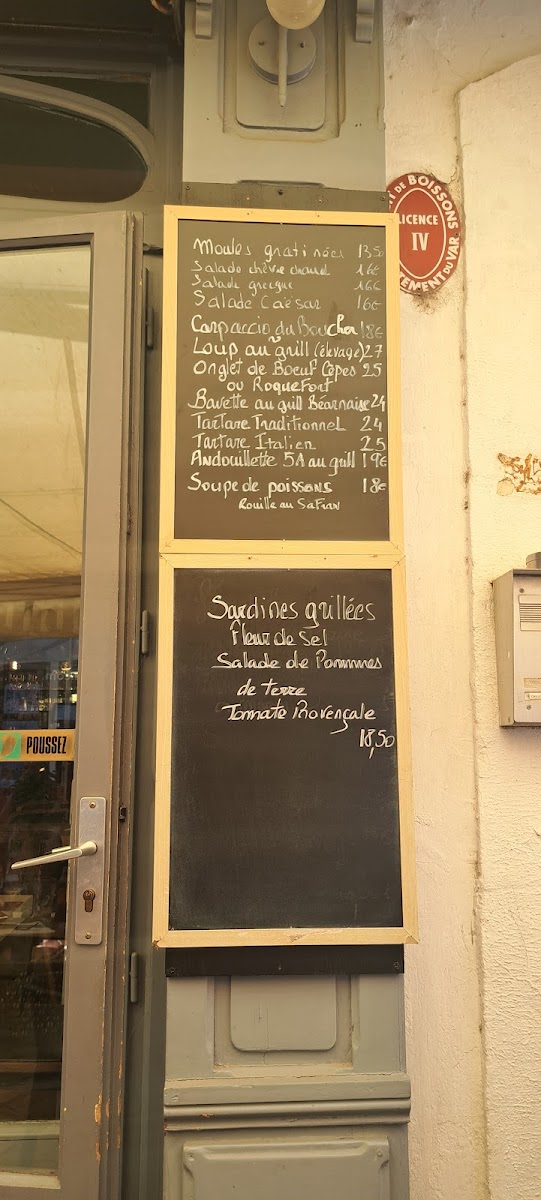 Moules gratinées 13,50
Salade chèvre chaud 16€
Salade grecque 16€
Salade Caésar 16€
Carpaccio du Boucher 18€
Loup au grill (élevage) 27
Onglet de Boeuf Cèpes 25
ou Roquefort
Bavette au grill Béarnaise 24
Tartare Traditionnel 24
Tartare Italien 25
Andouillette 5A au grill 19€
Soupe de poissons 18€
Rouille au Safran
Sardines grillées
Fleur de Sel
Salade de Pommmes
de terre
Tomate Provençale
18,50
DE BOISSONS
LICENCE
IV
DU VAR
POUSSEZ